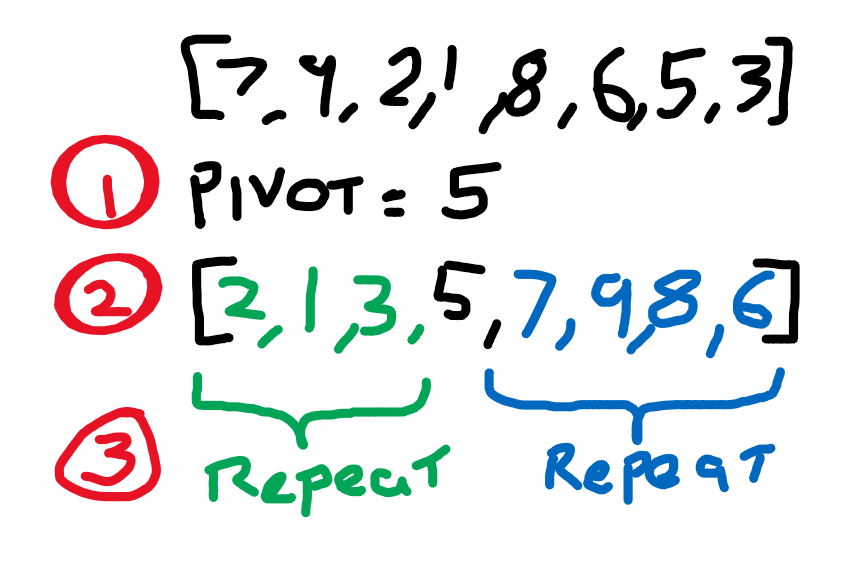 [7, 9, 2, 1, 8, 6, 5, 3]
1 PIVOT = 5
2 [2, 1, 3, 5, 7, 9, 8, 6]
3 Repeat Repeat